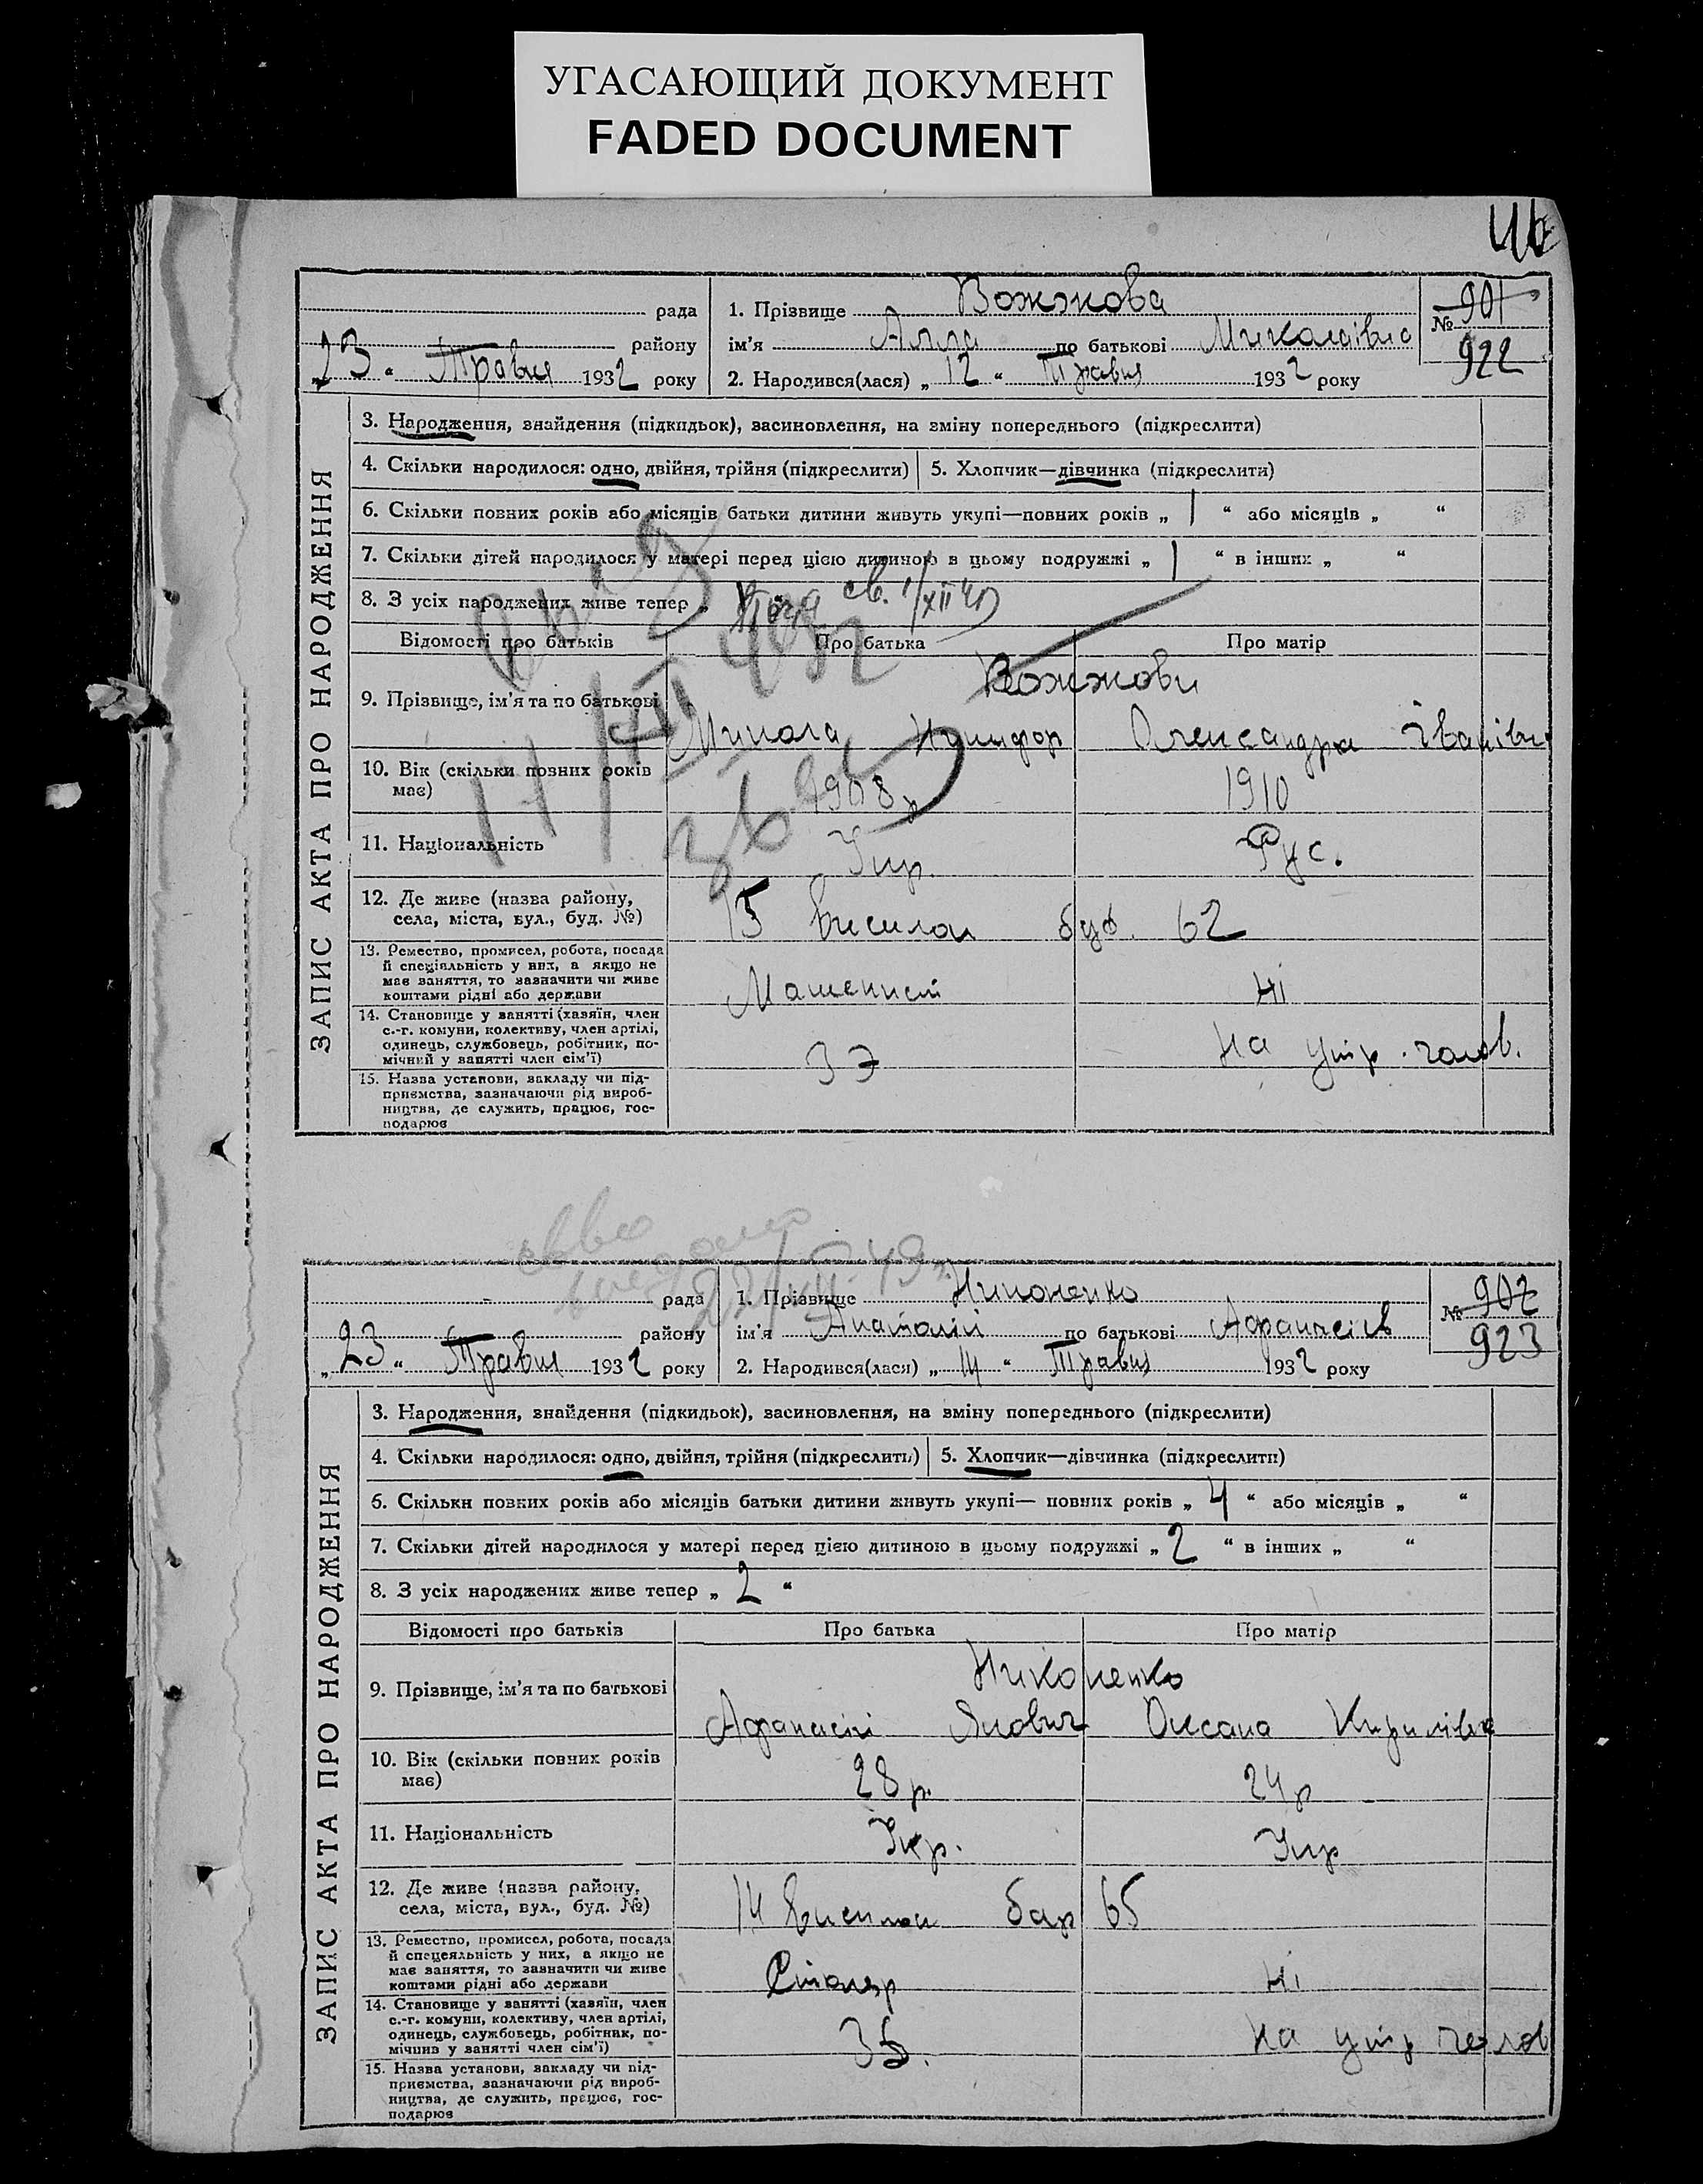 УГАСАЮЩИЙ ДОКУМЕНТ
FADED DOCUMENT
рада
району
„23“ Травня 1932 року
1. Прізвище Вожжова
ім'я Алла по батькові Миколаівна
2. Народився(лася) „12“ Травня 1932 року
№ 901
922
ЗАПИС АКТА ПРО НАРОДЖЕННЯ
3. Народження, знайдення (підкидьок), засиновлення, на зміну попереднього (підкреслити)
4. Скільки народилося: одно, двійня, трійня (підкреслити)
5. Хлопчик—дівчинка (підкреслити)
6. Скільки повних років або місяців батьки дитини живуть укупі—повних років „1“ або місяців „ “
7. Скільки дітей народилося у матері перед цією дитиною в цьому подружжі „1“ в інших „ “
8. З усіх народжених живе тепер „
Відомості про батьків
Про батька
Про матір
9. Прізвище, ім'я та по батькові
Вожжови
Микола
Олександра Іванівн
10. Вік (скільки повних років має)
1908р
1910
11. Національність
Укр.
Рус.
12. Де живе (назва району,
села, міста, вул., буд. №)
15 виселок буд. 62
13. Ремество, промисел, робота, посада
й спеціяльність у них, а якщо не
має заняття, то зазначити чи живе
коштами рідні або держави
Машеніст
Ні
14. Становище у занятті (хазяїн, член
с.-г. комуни, колективу, член артілі,
одинець, службовець, робітник, по-
мічний у занятті член сім'ї)
На утр. чолов.
15. Назва установи, закладу чи під-
приємства, зазначаючи рід вироб-
ництва, де служить, працює, гос-
подарює
рада
району
„23“ Травня 1932 року
1. Прізвище Никоненко
ім'я Анатолій по батькові Афанасіів
2. Народився(лася) „14“ Травня 1932 року
№ 902
923
ЗАПИС АКТА ПРО НАРОДЖЕННЯ
3. Народження, знайдення (підкидьок), засиновлення, на зміну попереднього (підкреслити)
4. Скільки народилося: одно, двійня, трійня (підкреслить)
5. Хлопчик—дівчинка (підкреслити)
6. Скільки повних років або місяців батьки дитини живуть укупі— повних років „4“ або місяців „ “
7. Скільки дітей народилося у матері перед цією дитиною в цьому подружжі „2“ в інших „ “
8. З усіх народжених живе тепер „2“
Відомості про батьків
Про батька
Про матір
9. Прізвище, ім'я та по батькові
Никоненко
Афанасій Якович
Оксана Кирилівна
10. Вік (скільки повних років має)
28р.
24р
11. Національність
Укр.
Укр
12. Де живе (назва району,
села, міста, вул., буд. №)
14 виселок бар 65
13. Ремество, промисел, робота, посада
й спецеяльність у них, а якщо не
має заняття, то зазначити чи живе
коштами рідні або держави
Столяр
Ні
14. Становище у занятті (хазяїн, член
с.-г. комуни, колективу, член артілі,
одинець, службовець, робітник, по-
мічнив у занятті член сім'ї)
На утр чолов
15. Назва установи, закладу чи під-
приємства, зазначаючи рід вироб-
ництва, де служить, працює, гос-
подарює